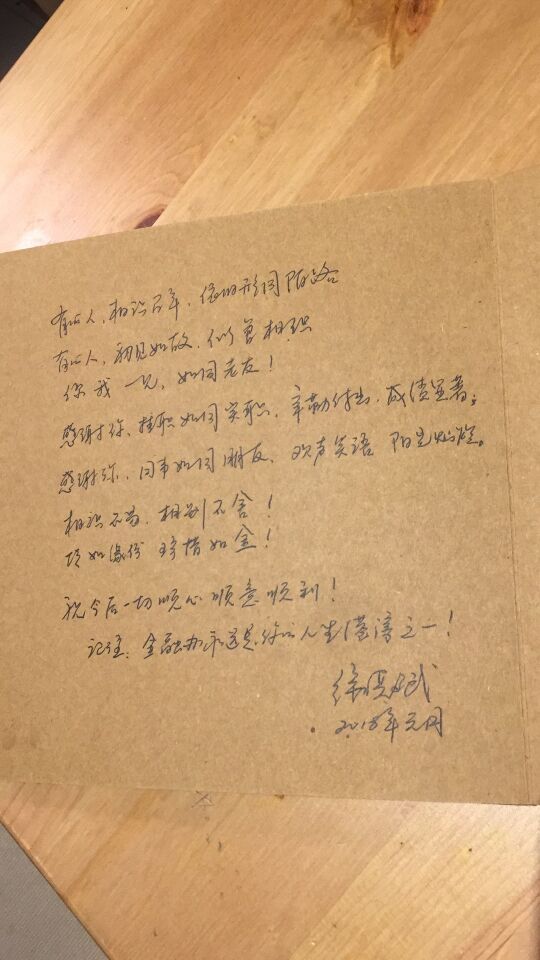 有的人，相识百年，依旧形同陌路
有的人，初见如故，似曾相识
你我一见，如同老友！
感谢你，挂职如同实职，辛勤付出，成绩显著；
感谢你，同事如同朋友，欢声笑语 阳光灿烂。
相识不易，相别不舍！
情如缘份 珍惜如金！
祝今后一切顺心顺意顺利！
记住：金融办永远是你的人生港湾之一！
徐
2018年元月